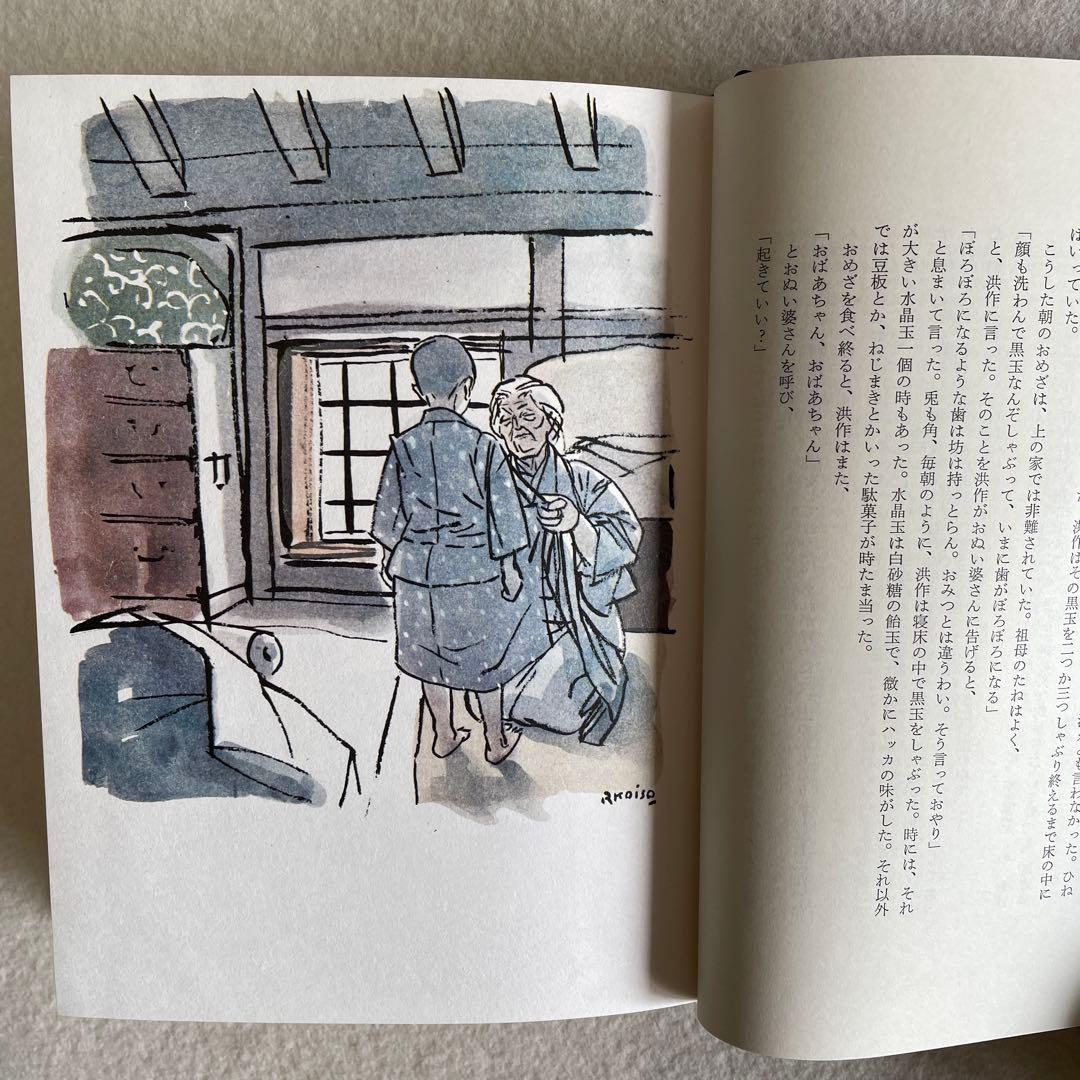 洪作はその黒玉を二つか三つしゃぶり終えるまで床の中に
はいっていた。
こうした朝のおめざは、上の家では非難されていた。祖母のたねはよく、
「顔も洗わんで黒玉なんぞしゃぶって、いまに歯がぼろぼろになる」
と、洪作に言った。そのことを洪作がおぬい婆さんに告げると、
「ぼろぼろになるような歯は坊は持っとらん。おみつとは違うわい。そう言っておやり」
と息まいて言った。兎も角、毎朝のように、洪作は寝床の中で黒玉をしゃぶった。時には、それ
が大きい水晶玉一個の時もあった。水晶玉は白砂糖の飴玉で、微かにハッカの味がした。それ以外
では豆板とか、ねじまきとかいった駄菓子が時たま当った。
おめざを食べ終ると、洪作はまた、
「おばあちゃん、おばあちゃん」
とおぬい婆さんを呼び、
「起きていい？」
RKOISO